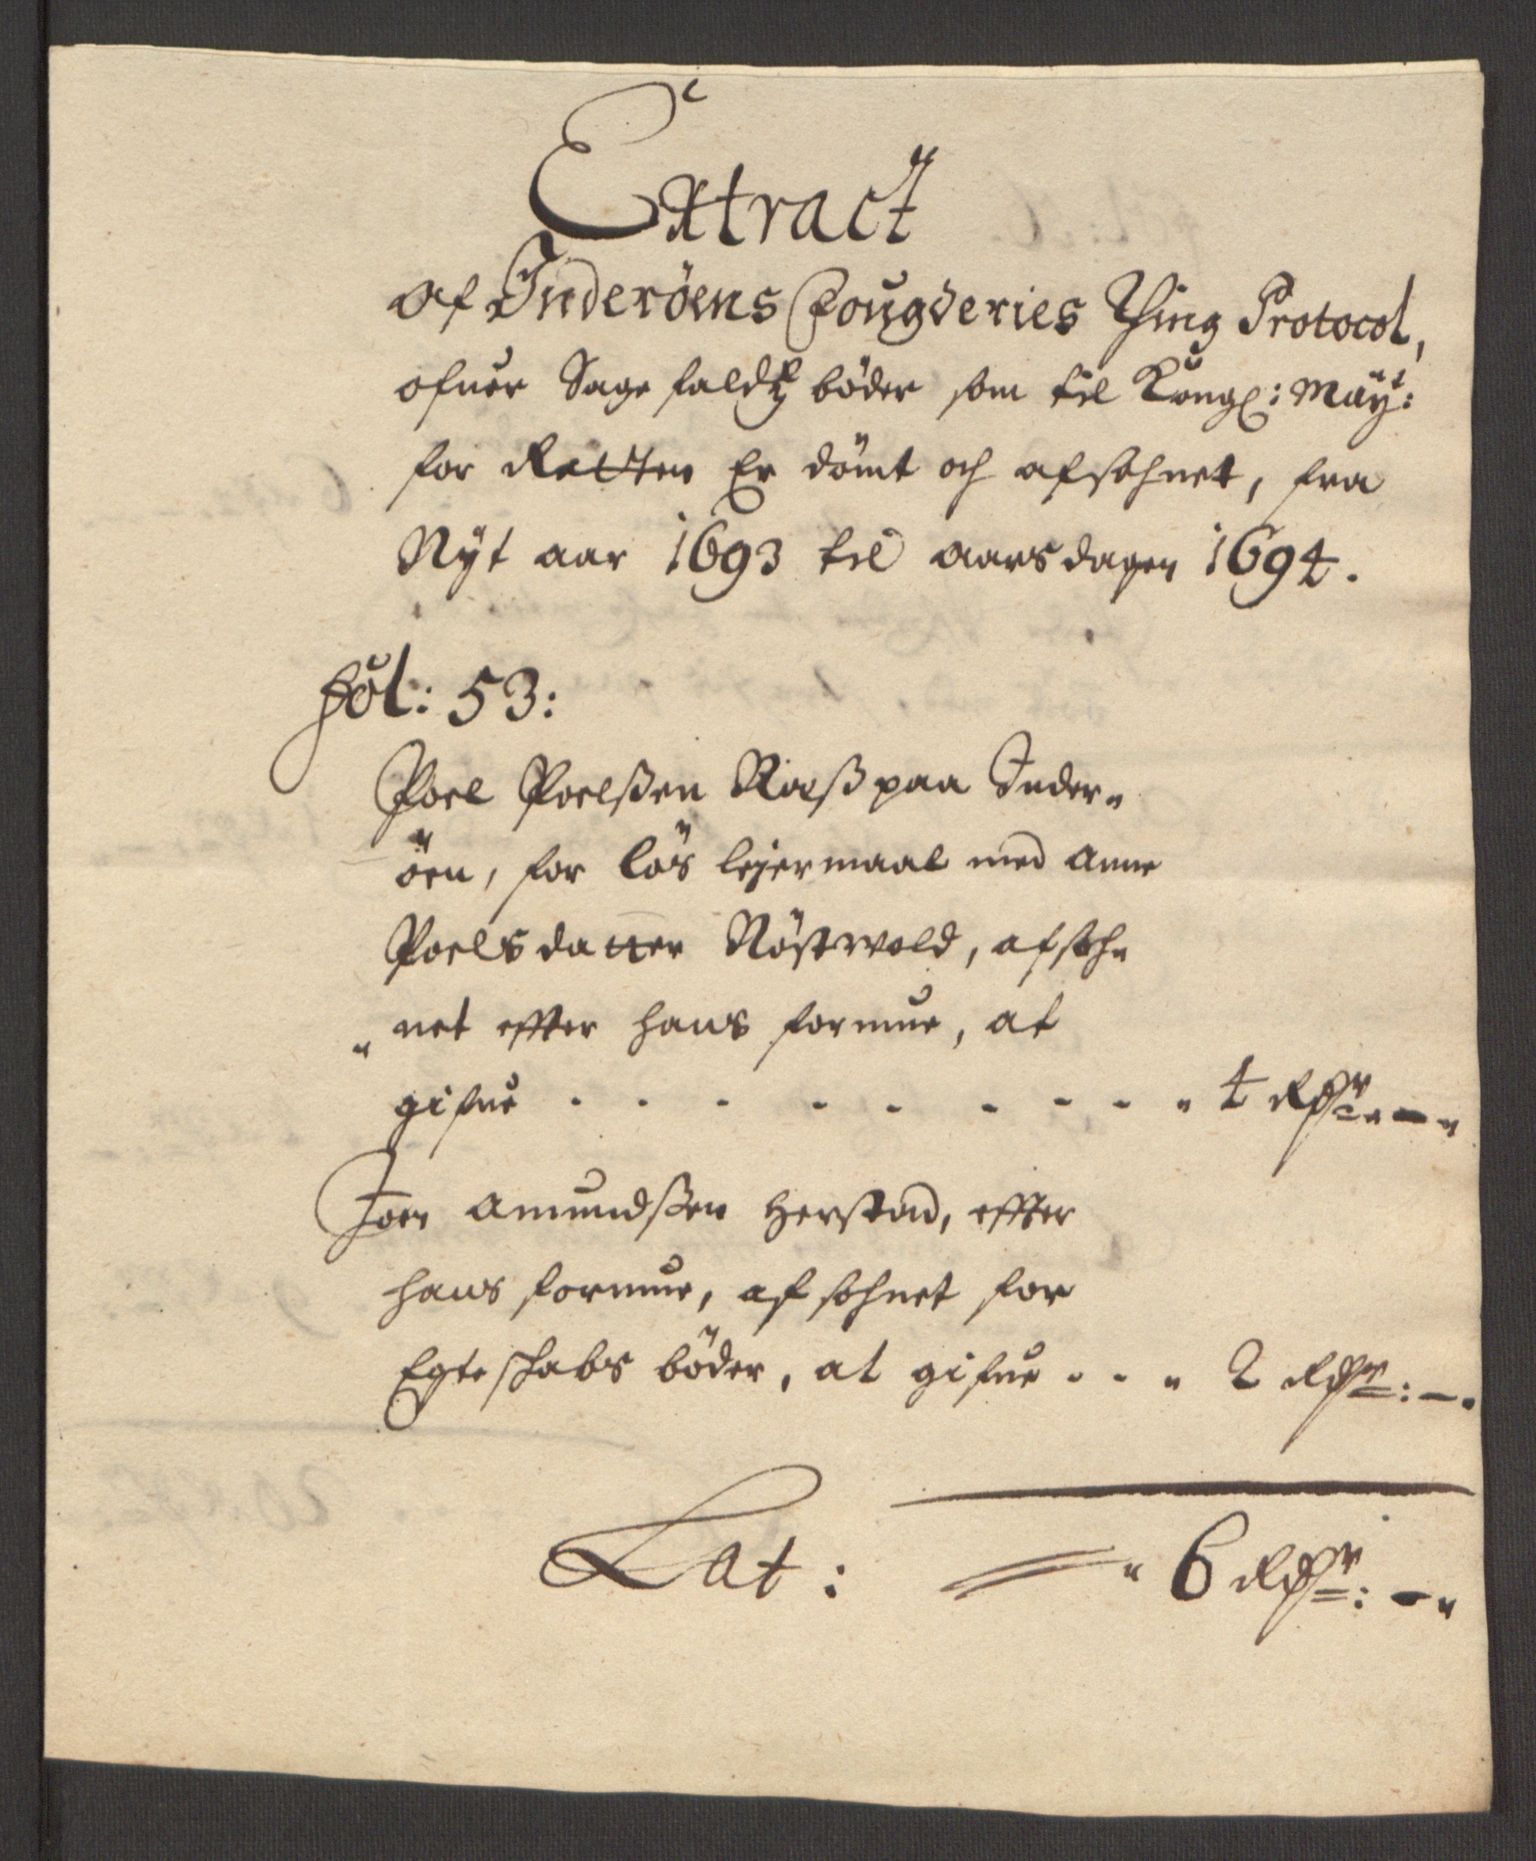 Extract
Af Inderöens Fougderies Thing Protocol,
ofuer Sage falds böder som til Kongl: Maÿt:
for Retten Er dömt och afsohnet, fra
Nÿt aar 1693 til aarsdagen 1694.
Fol: 53:
Poel Poelßen Roeß paa Inder-
öen, for lös lejermaal med Anne
Poelsdatter Röstwold, afsoh-
net effter hans formue, at
gifue . . . . . . . . . 4 Rdr
Joen Amundßen Herstad, effter
hans formue, afsohnet for
Egteskabs böder, at gifue . . . 2 Rdr: -
Lat: 6 Rdr: -